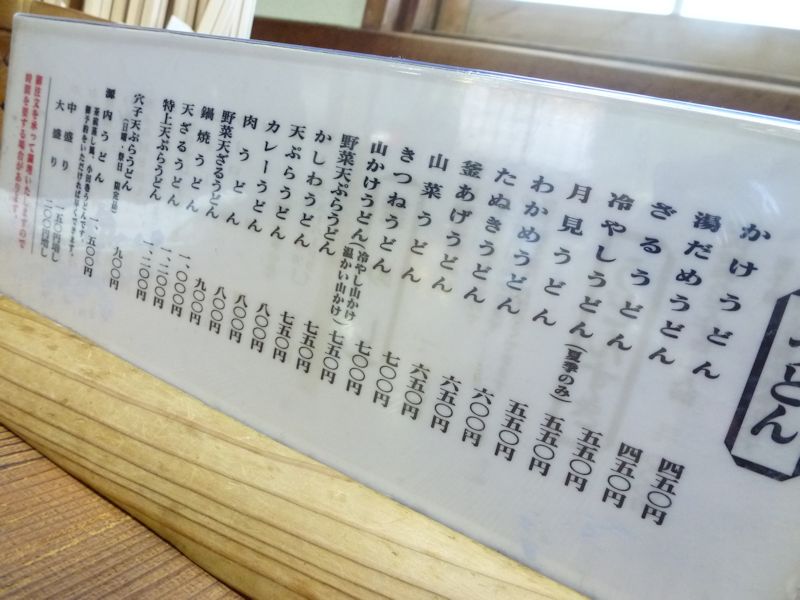 うどん
かけうどん 四五〇円
湯だめうどん 四五〇円
ざるうどん 五五〇円
冷やしうどん(夏季のみ) 五五〇円
月見うどん 五五〇円
わかめうどん 六〇〇円
たぬきうどん 六五〇円
釜あげうどん 六五〇円
山菜うどん 七〇〇円
きつねうどん 七〇〇円
山かけうどん(冷やし山かけ 温かい山かけ) 七五〇円
野菜天ぷらうどん 七五〇円
かしわうどん 七五〇円
天ぷらうどん 八〇〇円
カレーうどん 八〇〇円
肉うどん 八〇〇円
野菜天ざるうどん 九〇〇円
鍋焼うどん 一、〇〇〇円
天ざるうどん 一、二〇〇円
特上天ぷらうどん 一、二〇〇円
穴子天ぷらうどん 九〇〇円
(日曜・祭日 限定品)
源内うどん 一、五〇〇円
茶碗蒸し風、小田巻うどんです。
御予約をいただければ早くできます。
中盛り 一五〇円増し
大盛り 二〇〇円増し
御注文を承って調理いたしますので
時間を要する場合があります。